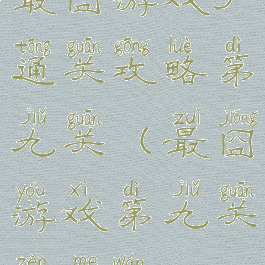 最囧游戏》
tōng guān gōng lüè dì
通关攻略第
jiǔ guān zuì jiǒng
九关（最囧
yóu xì dì jiǔ guān
游戏第九关
zěn me wán